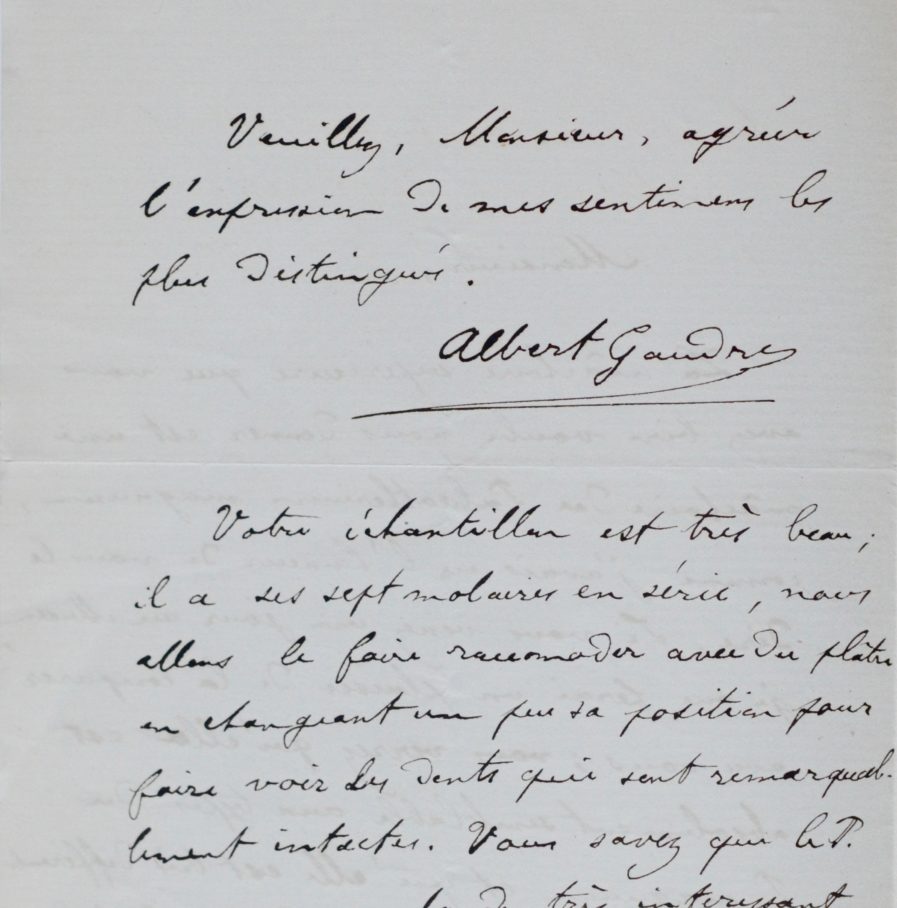 Veuillez, Monsieur, agréer
l'expression de mes sentimens les
plus distingués.
Albert Gaudry
Votre échantillon est très beau;
il a ses sept molaires en série, nous
allons le faire raccomoder avec du plâtre
en changeant un peu sa position pour
faire voir les dents qui sont remarquab-
lement intactes. Vous savez que le P.
très interessant